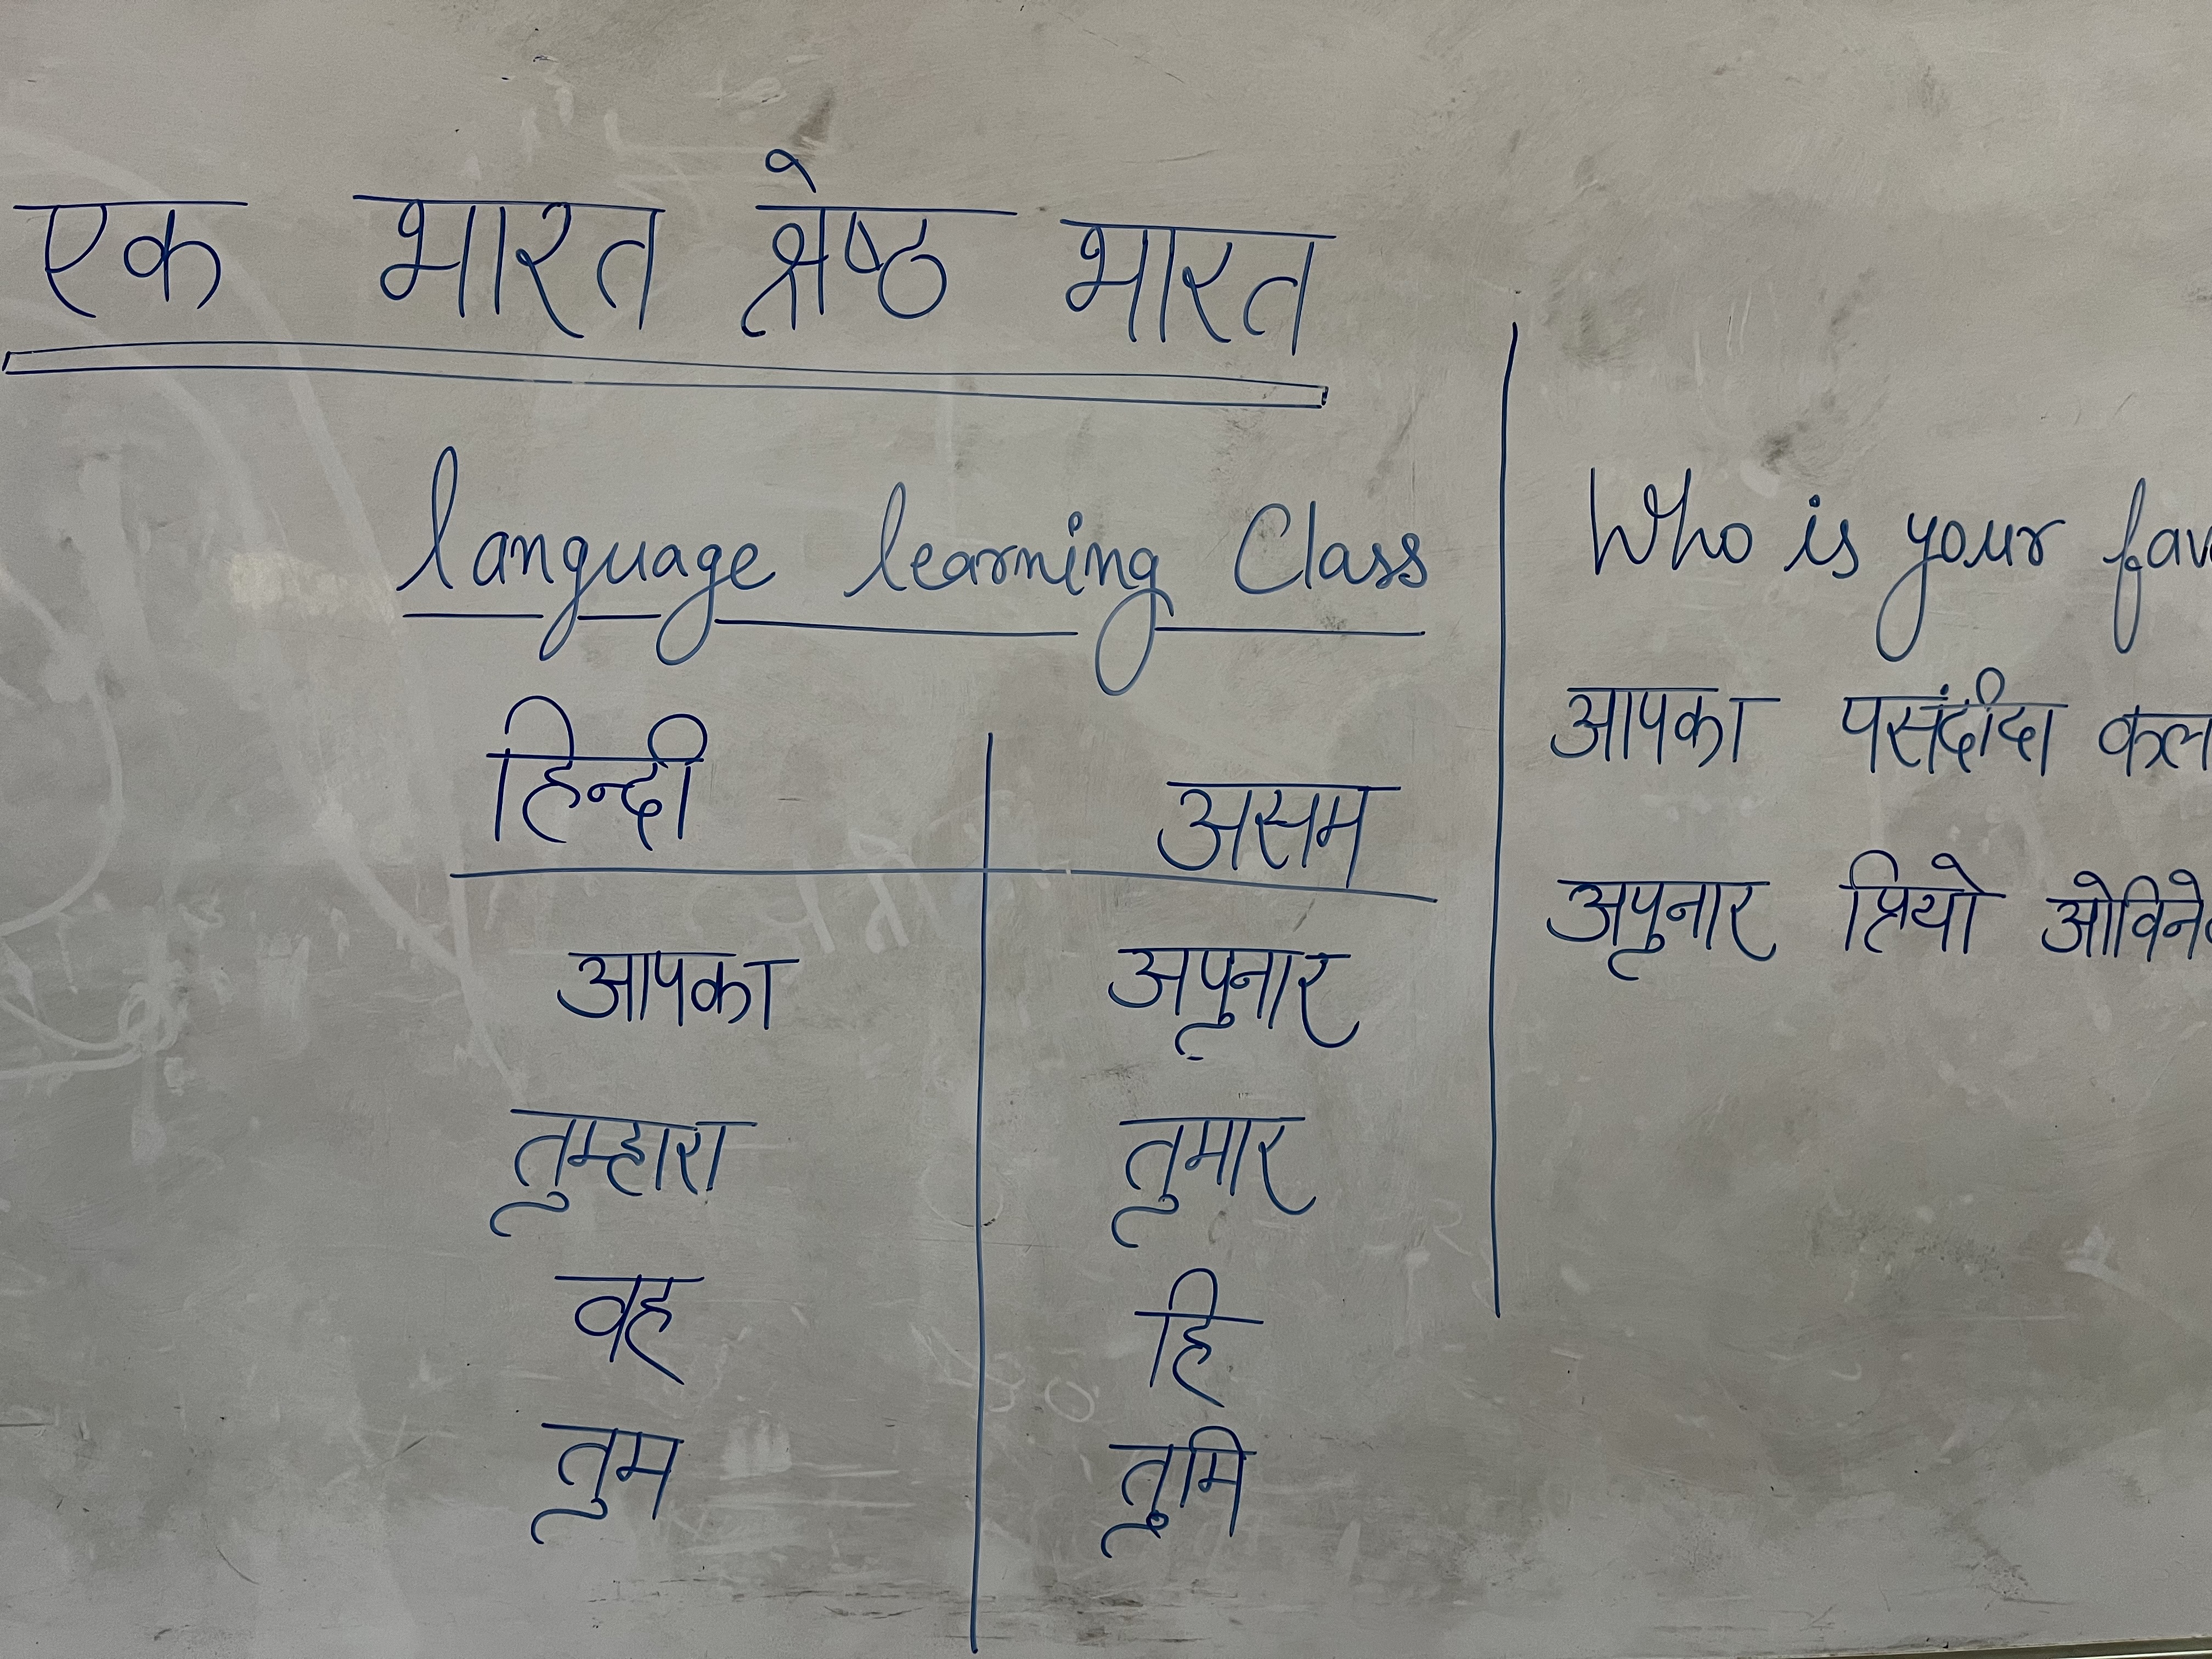 एक भारत श्रेष्ठ भारत
language learning Class
हिन्दी असम
आपका अपुनार
तुम्हारा तुमार
वह हि
तुम तुमि
Who is your
आपका पसंदीदा
अपुनार प्रियो